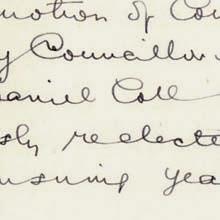 motion of Cou
y Councillor
aniel Coll
sly reelecte
nsuing yea